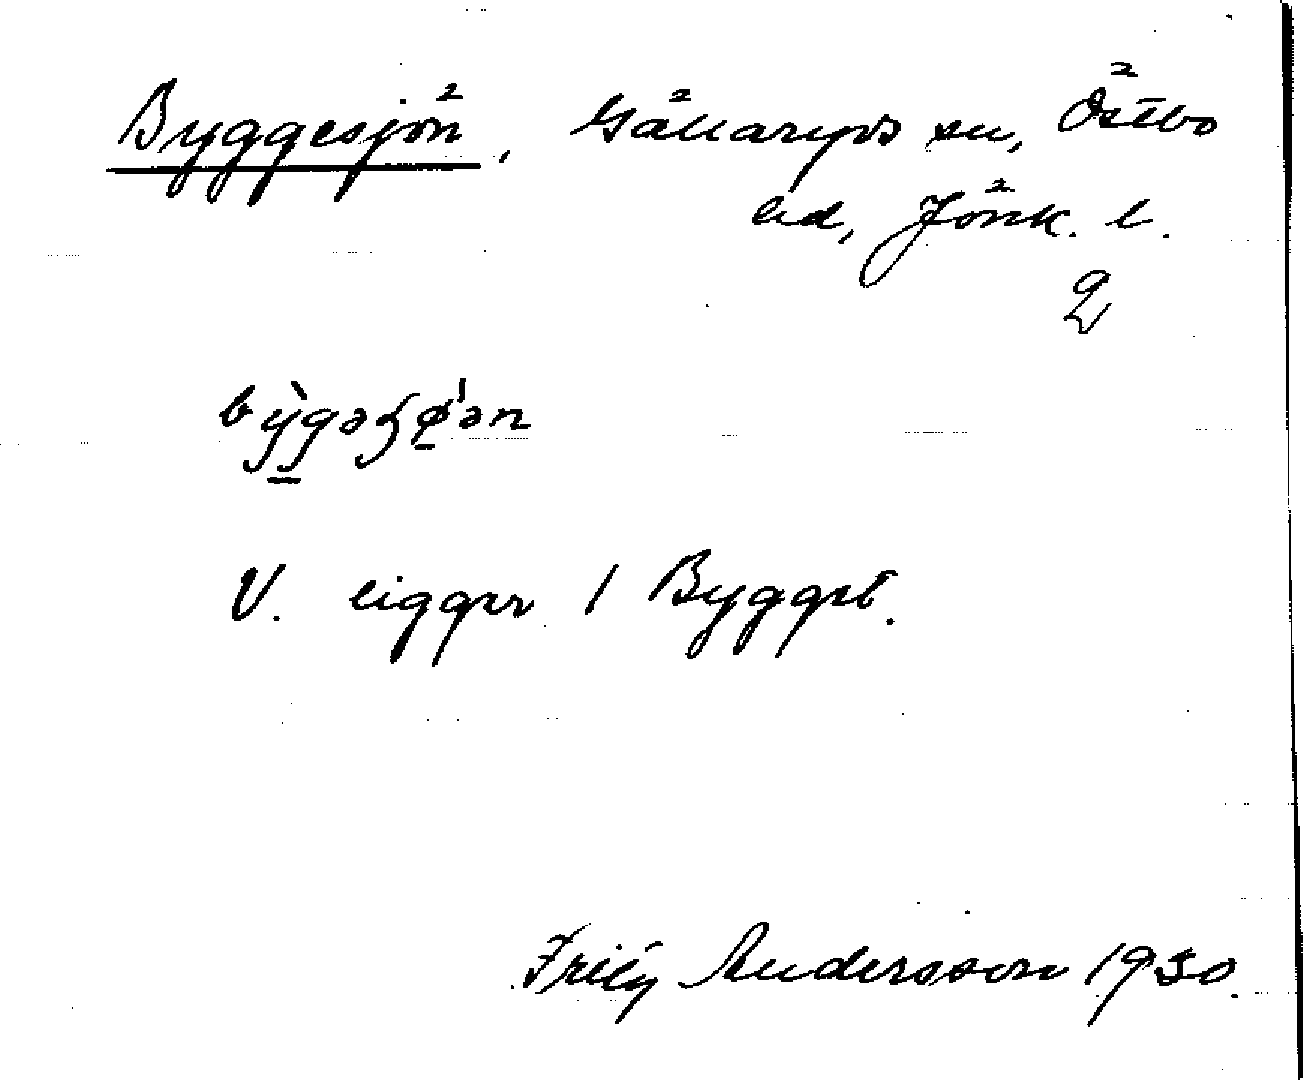 Byggesjön, Gällaryds sn, Östbo
hd, Jönk. l.
V. ligger i Bygget.
Fritz Andersson 1930.